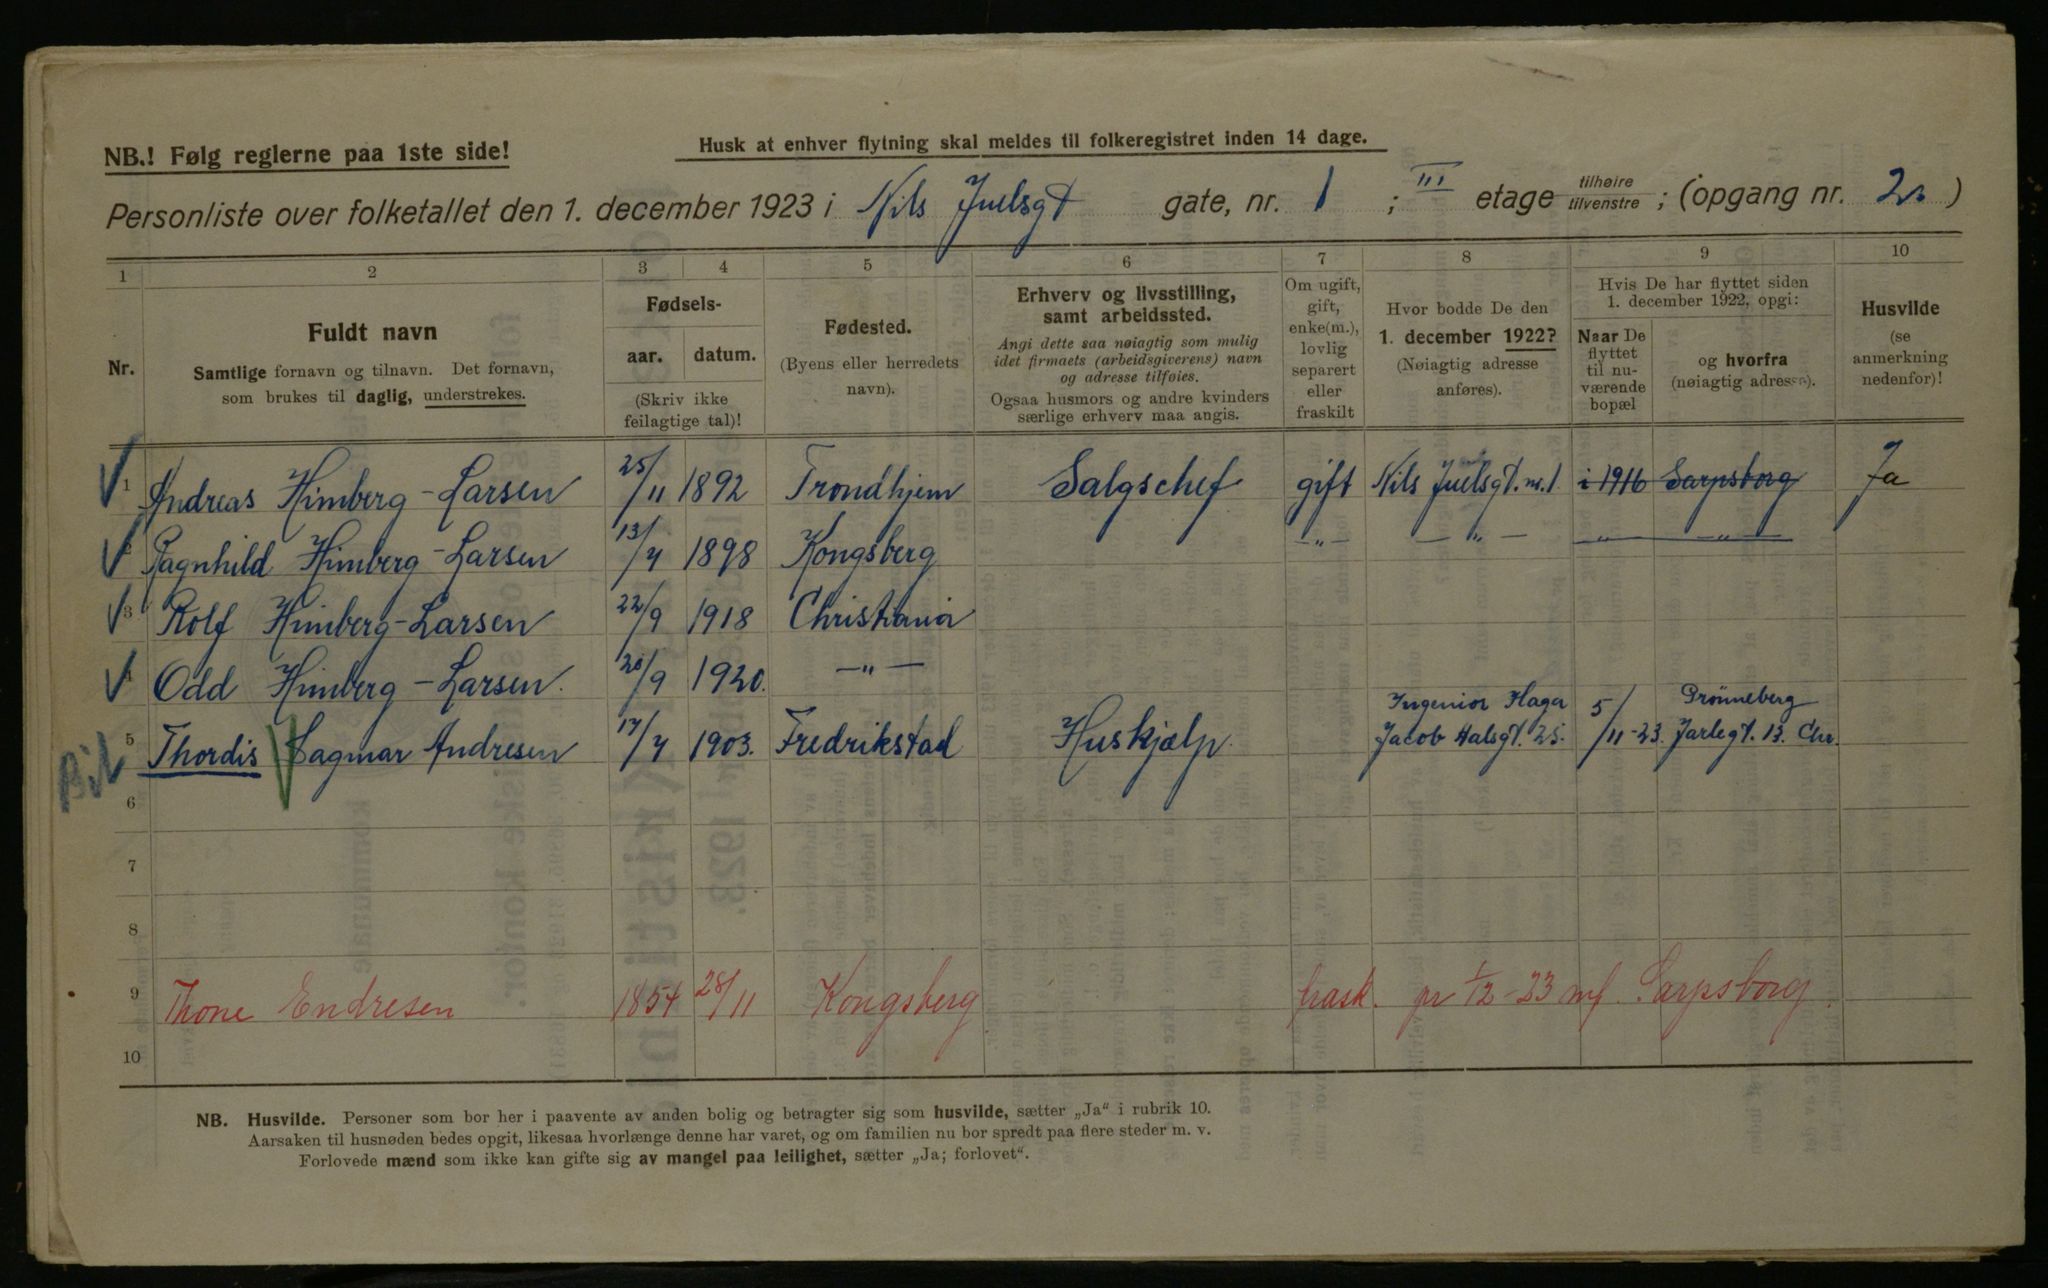 NB.! Følg reglerne paa 1ste side!
Husk at enhver flytning skal meldes til folkeregistret inden 14 dage.
Personliste over folketallet den 1. december 1923 i Nils Juelsgt gate, nr. 1 ; III etage tilhøire tilvenstre ; (opgang nr. 2 )
1 2 3 4 5 6 7 8 9 10
Nr.
Fuldt navn
Samtlige fornavn og tilnavn. Det fornavn,
som brukes til daglig, understrekes.
Fødsels-
aar. datum.
(Skriv ikke
feilagtige tal)!
Fødested.
(Byens eller herredets
navn).
Erhverv og livsstilling,
samt arbeidssted.
Angi dette saa nøiagtig som mulig
idet firmaets (arbeidsgiverens) navn
og adresse tilføies.
Ogsaa husmors og andre kvinders
særlige erhverv maa angis.
Om ugift,
gift,
enke(m.),
lovlig
separert
eller
fraskilt
Hvor bodde De den
1. december 1922?
(Nøiagtig adresse
anføres).
Hvis De har flyttet siden
1. december 1922, opgi:
Naar De
flyttet
til nu-
værende
bopæl
og hvorfra
(nøiagtig adresse).
Husvilde
(se
anmerkning
nedenfor)!
1 Andreas Himberg-Larsen 25/11 1892 Trondhjem Salgschef gift Nils Juelsgt. nr. 1 i 1916 Sarpsborg Ja
Ragnhild Himberg-Larsen 13/4 1898 Kongsberg —„— — „ — —„— —„—
3 Rolf Himberg-Larsen 22/9 1918 Christiania
4 Odd Himberg-Larsen. 20/9 1920. —„—
5 Thordis Dagmar Andresen 17/4 1903. Fredrikstad Huskjælp. Ingeniør Haga Jacob Halsgt. 25. 5/11-23. Grönneberg Jarlegt. 13. Chr.
Bil
6
7
8
9 Thone Endresen 1854 28/11 Kongsberg frask. pr 1/12-23 mf. Sarpsborg.
10
NB. Husvilde. Personer som bor her i paavente av anden bolig og betragter sig som husvilde, sætter „Ja“ i rubrik 10.
Aarsaken til husnøden bedes opgit, likesaa hvorlænge denne har varet, og om familien nu bor spredt paa flere steder m. v.
Forlovede mænd som ikke kan gifte sig av mangel paa leilighet, sætter „Ja; forlovet“.